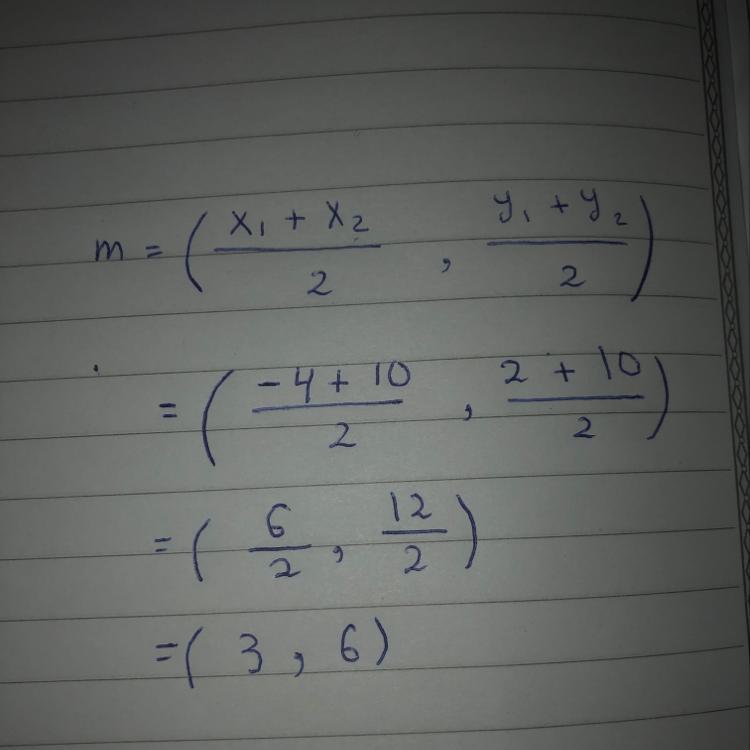 m = ( x₁ + x₂ / 2 , y₁ + y₂ / 2 )
= ( -4 + 10 / 2 , 2 + 10 / 2 )
= ( 6 / 2 , 12 / 2 )
= ( 3 , 6 )